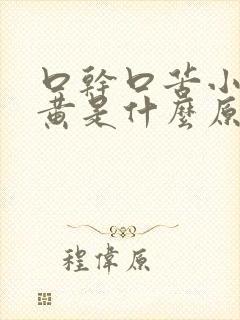 口幹口苦小
黃是什麼原
程偉原